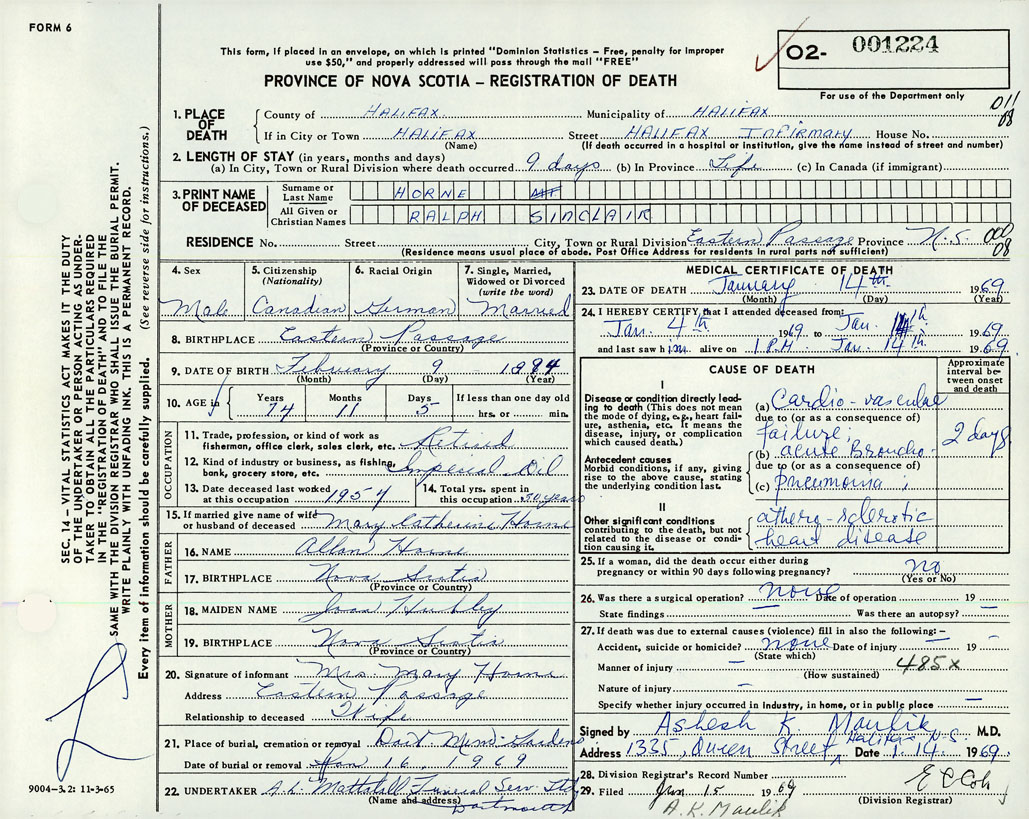 FORM 6
This form, if placed in an envelope, on which is printed "Dominion Statistics – Free, penalty for improper
use $50," and properly addressed will pass through the mail "FREE"
PROVINCE OF NOVA SCOTIA – REGISTRATION OF DEATH
O2- 001224
For use of the Department only
011
08
1. PLACE OF DEATH
County of HALIFAX Municipality of HALIFAX
If in City or Town HALIFAX Street HALIFAX INFIRMARY House No.
(Name) (If death occurred in a hospital or institution, give the name instead of street and number)
2. LENGTH OF STAY (in years, months and days)
(a) In City, Town or Rural Division where death occurred 9 days (b) In Province Life (c) In Canada (if immigrant)
3. PRINT NAME OF DECEASED
Surname or Last Name HORNE
All Given or Christian Names RALPH SINCLAIR
RESIDENCE No. Street City, Town or Rural Division Eastern Passage Province N.S. 000
08
(Residence means usual place of abode. Post Office Address for residents in rural parts not sufficient)
4. Sex
Male
5. Citizenship
(Nationality)
Canadian
6. Racial Origin
German
7. Single, Married,
Widowed or Divorced
(write the word)
Married
8. BIRTHPLACE Eastern Passage
(Province or Country)
9. DATE OF BIRTH February 9 1894
(Month) (Day) (Year)
10. AGE in Years 74 Months 11 Days 5 If less than one day old
hrs. or min.
OCCUPATION
11. Trade, profession, or kind of work as
fisherman, office clerk, sales clerk, etc. Retired
12. Kind of industry or business, as fishing,
bank, grocery store, etc. Imperial Oil
13. Date deceased last worked
at this occupation 1954
14. Total yrs. spent in
this occupation 30 years
15. If married give name of wife
or husband of deceased Mary Catherine Horne
FATHER
16. NAME Allan Horne
17. BIRTHPLACE Nova Scotia
(Province or Country)
MOTHER
18. MAIDEN NAME
19. BIRTHPLACE Nova Scotia
(Province or Country)
20. Signature of informant Mrs. Mary Horne
Address Eastern Passage
Relationship to deceased Wife
21. Place of burial, cremation or removal Dart Mem. Gardens
Date of burial or removal Jan 16, 1969
22. UNDERTAKER A.L. Mattatall Funeral Serv. Ltd
(Name and address) Dartmouth
MEDICAL CERTIFICATE OF DEATH
23. DATE OF DEATH January 14th 1969
(Month) (Day) (Year)
24. I HEREBY CERTIFY that I attended deceased from
Jan. 4th 1969 to Jan. 14th 1969
and last saw him alive on 1 P.M. Jan. 14th 1969
CAUSE OF DEATH
Approximate
interval be-
tween onset
and death
I
Disease or condition directly lead-
ing to death (This does not
mean the mode of dying, e.g., heart fail-
ure, asthenia, etc. It means the
disease, injury, or complication
which caused death.)
Antecedent causes
Morbid conditions, if any, giving
rise to the above cause, stating
the underlying condition last.
(a) Cardio-vascular
due to (or as a consequence of)
failure;
(b) acute Broncho- 2 days
due to (or as a consequence of)
(c) pneumonia;
II
Other significant conditions
contributing to the death, but not
related to the disease or condi-
tion causing it.
athero-sclerotic
heart disease
25. If a woman, did the death occur either during
pregnancy or within 90 days following pregnancy? no
(Yes or No)
26. Was there a surgical operation? none Date of operation 19
State findings Was there an autopsy? —
27. If death was due to external causes (violence) fill in also the following: –
Accident, suicide or homicide? none Date of injury – 19 –
(State which)
Manner of injury – 485x
(How sustained)
Nature of injury –
Specify whether injury occurred in Industry, in home, or in public place –
Signed by Ashesh K. Maulik M.D.
Address 1335, Queen Street, Halifax N.S. Date 1.14 1969.
28. Division Registrar's Record Number
29. Filed Jan 15 1969
(Division Registrar)
A.K. Maulik
SEC. 14 – VITAL STATISTICS ACT MAKES IT THE DUTY
OF THE UNDERTAKER OR PERSON ACTING AS UNDER-
TAKER TO OBTAIN ALL THE PARTICULARS REQUIRED
IN THE "REGISTRATION OF DEATH" AND TO FILE THE
SAME WITH THE DIVISION REGISTRAR WHO SHALL ISSUE THE BURIAL PERMIT.
WRITE PLAINLY WITH UNFADING INK. THIS IS A PERMANENT RECORD.
Every item of information should be carefully supplied. (See reverse side for instructions.)
9004-3.2: 11-3-65